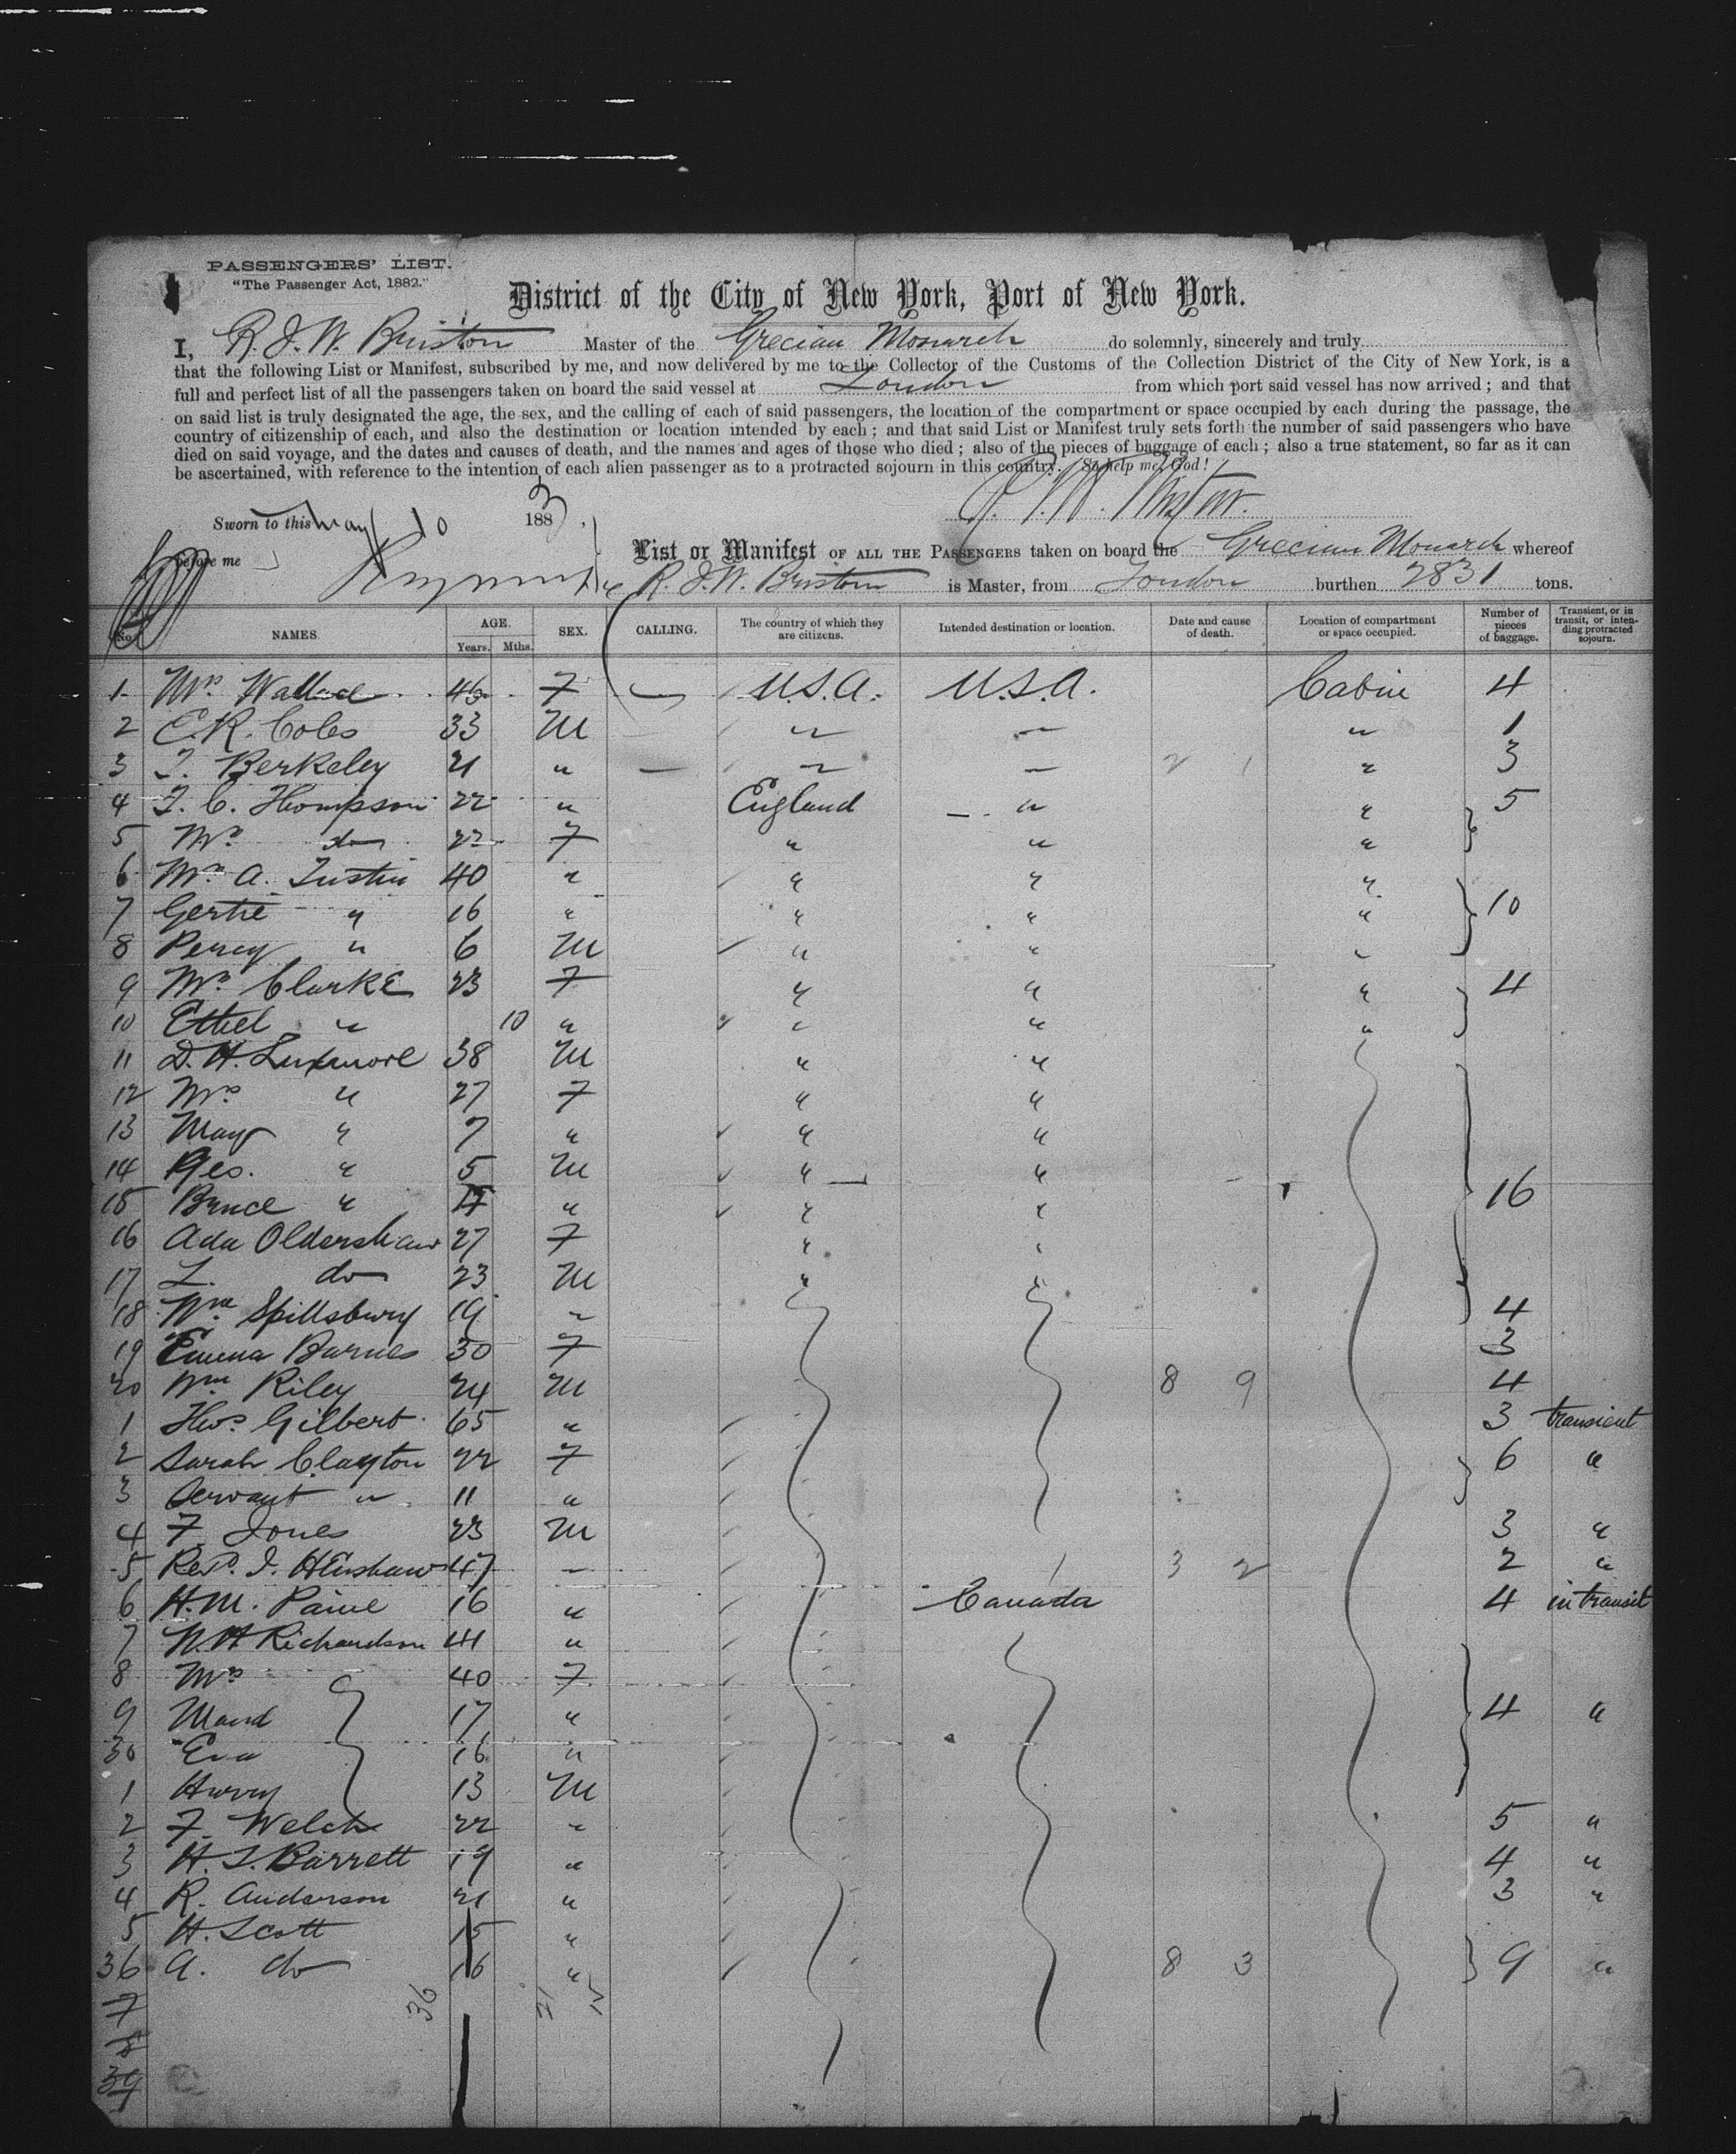 PASSENGERS' LIST.
"The Passenger Act, 1882."
District of the City of New York, Port of New York.
I, R. J. W. Bristow Master of the Grecian Monarch do solemnly, sincerely and truly
that the following List or Manifest, subscribed by me, and now delivered by me to the Collector of the Customs of the Collection District of the City of New York, is a
full and perfect list of all the passengers taken on board the said vessel at London from which port said vessel has now arrived; and that
on said list is truly designated the age, the sex, and the calling of each of said passengers, the location of the compartment or space occupied by each during the passage, the
country of citizenship of each, and also the destination or location intended by each; and that said List or Manifest truly sets forth the number of said passengers who have
died on said voyage, and the dates and causes of death, and the names and ages of those who died; also of the pieces of baggage of each; also a true statement, so far as it can
be ascertained, with reference to the intention of each alien passenger as to a protracted sojourn in this country. So help me God!
Sworn to this May 10 1883,
before me
List or Manifest OF ALL THE PASSENGERS taken on board the Grecian Monarch whereof
R. J. W. Bristow is Master, from London burthen 2831 tons.
No. NAMES AGE. Years. Mths. SEX. CALLING. The country of which they are citizens. Intended destination or location. Date and cause of death. Location of compartment or space occupied. Number of pieces of baggage. Transient, or in transit, or intending protracted sojourn.
1 Mrs Wallace 46 F — U.S.A. U.S.A. Cabin 4
2 E. R. Coles 33 M — " — " 1
3 T. Berkeley 21 " — " — 2 1 " 3
4 T. C. Thompson 22 " England — " " 5
5 Mrs do 22 F " " "
6 Mrs A. Tustin 40 " " " "
7 Gertie " 16 " " " " 10
8 Percy " 6 M " " "
9 Mrs Clarke 23 F " " " 4
10 Ethel " 10 " " " "
11 D. H. Luxmore 38 M " "
12 Mrs " 27 F " "
13 May " 7 " " "
14 Geo. " 5 M " "
15 Bruce " " " " 16
16 Ada Oldershaw 27 F " "
17 L. do 23 M " "
18 Wm Spillsbury 19 " 4
19 Emma Barnes 30 F 3
20 Wm Riley 24 M 8 9 4
1 Thos Gilbert 65 " 3 transient
2 Sarah Clayton 22 F 6 "
3 Servant " 11 "
4 F. Jones 23 M 3 "
5 Revd. J. Henshaw 47 " 3 2 2 "
6 H. M. Paine 16 " Canada 4 in transit
7 W. H. Richardson 41 "
8 Mrs 40 F
9 Maud 17 " 4 "
30 Eva 16 "
1 Harry 13 M
2 F. Welch 22 " 5 "
3 H. S. Barrett 19 " 4 "
4 R. Anderson 21 " 3 "
5 H. Scott 15 "
36 A. do 16 " 8 3 9 "
7 36 21 15
8
39